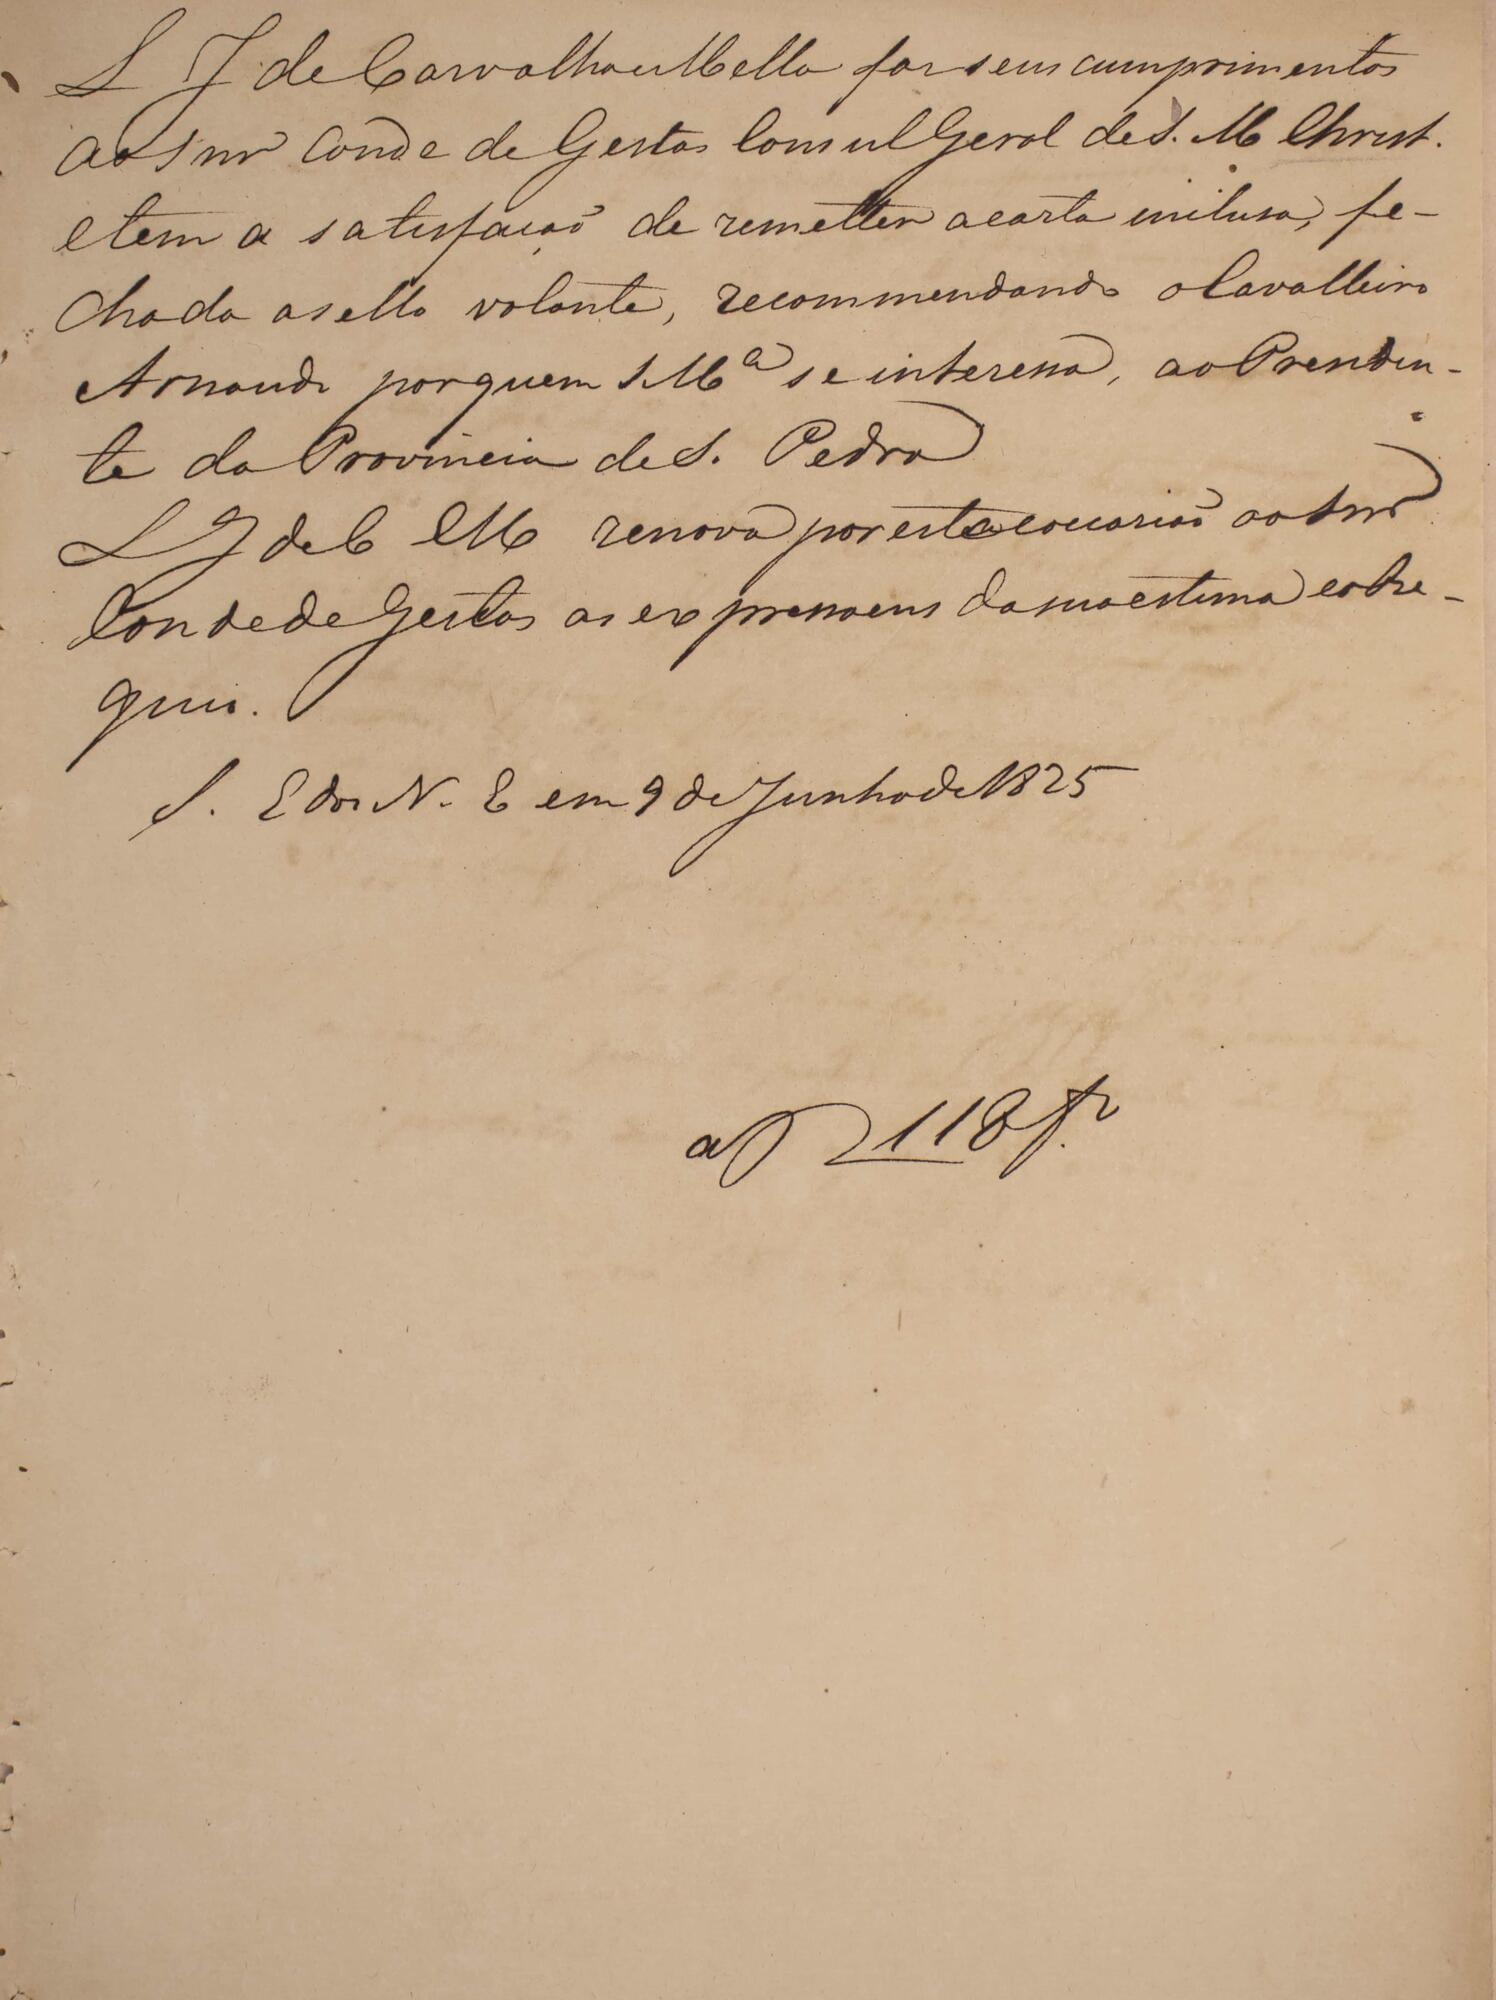 L J de Carvalho e Mello faz seus cumprimentos
ao Snr Conde de Gestas Consul Geral de S. M Christ.
e tem a satisfação de remetter a carta inclusa, fe-
chada a sello volante, recommendando o Cavalleiro
Arnaud por quem S Mª se interessa, ao Presiden-
te da Provincia de S. Pedro
L J de C e M renova por esta occasião ao Snr
Conde de Gestas as expressoens da sua estima e obse-
quio.
S. E dos N. E em 9 de Junho de 1825
118 fr